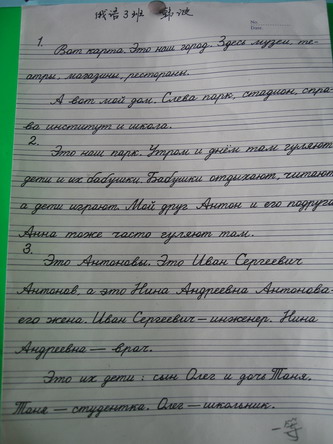 俄语3班
No.
Date
1.
Вот карта. Это наш город. Здесь музеи, те-
атры, магазины, рестораны.
А вот мой дом. Слева парк, стадион, спра-
ва институт и школа.
2.
Это наш парк. Утром и днём там гуляют
дети и их бабушки. Бабушки отдыхают, читают
а дети играют. Мой друг Антон и его подруга
Анна тоже часто гуляют там.
3.
Это Антоновы. Это Иван Сергеевич
Антонов, а это Нина Андреевна Антонова-
его жена. Иван Сергеевич — инженер. Нина
Андреевна — врач.
Это их дети: сын Олег и дочь Таня.
Таня — студентка. Олег — школьник.